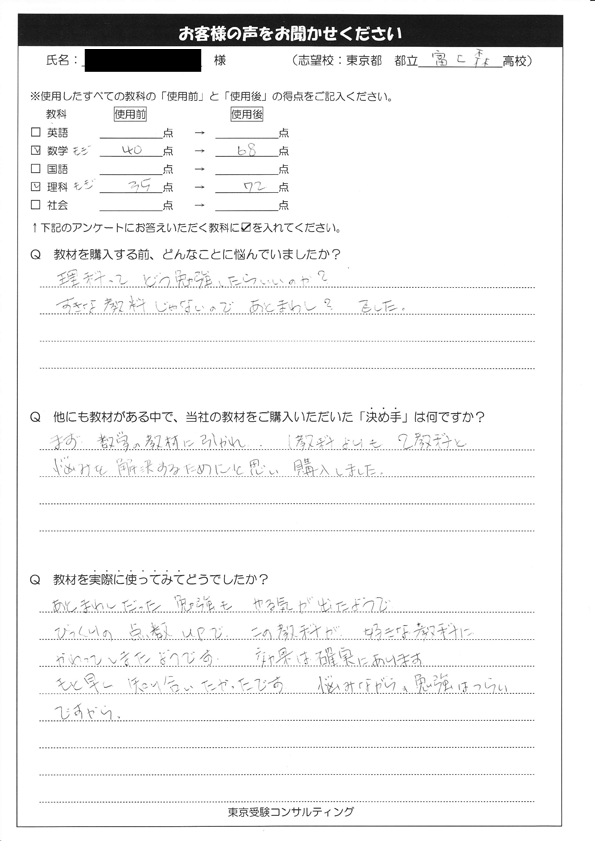 お客様の声をお聞かせください
氏名： 様 （志望校：東京都 都立 富士森 高校）
※使用したすべての教科の「使用前」と「使用後」の得点をご記入ください。
教科 使用前 使用後
□ 英語 点 → 点
☑ 数学 モジ 40 点 → 68 点
□ 国語 点 → 点
☑ 理科 モジ 35 点 → 72 点
□ 社会 点 → 点
↑下記のアンケートにお答えいただく教科に☑を入れてください。
Q 教材を購入する前、どんなことに悩んでいましたか？
理科って どう勉強したらいいのか？
すきな教科じゃないので あとまわし？ でした．
Q 他にも教材がある中で、当社の教材をご購入いただいた「決め手」は何ですか？
まず 数学の教材に引かれ． 1教科よりも 2教科と
悩みを 解決するためにと思い 購入しました．
Q 教材を実際に使ってみてどうでしたか？
あとまわしだった 勉強も やる気が出たようで
びっくりの 点数UPで． この教科が 好きな教科に
かわってしまたようです． 効果は確実にあります
もと早く 知り合いたかったです 悩みながらの勉強はつらい
ですから．
東京受験コンサルティング